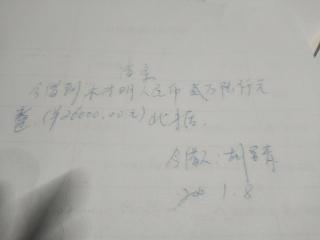 借条
今借到 人民币贰万陆仟元
整.(¥26000.00元)此据.
今借人:胡
1.8